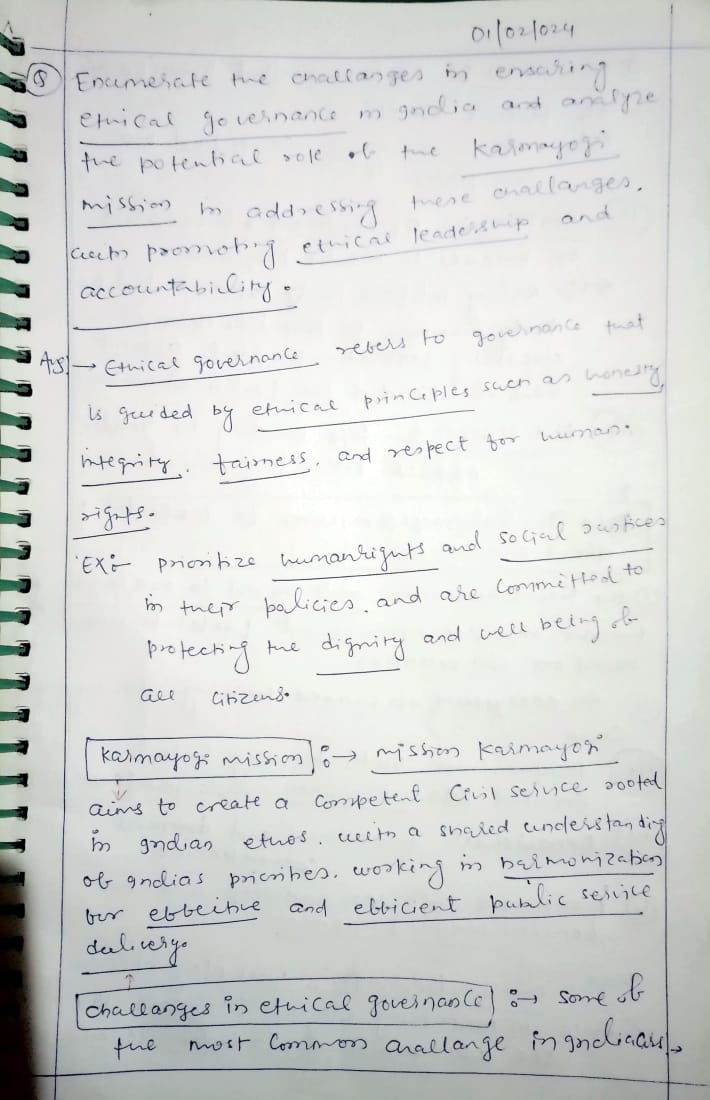 01/02/024
Q Enumerate the challanges in ensuring
ethical governance in india and analyze
the potential role of the Karmayogi
mission in addressing these challanges,
with promoting ethical leadership and
accountability.
Ans → Ethical governance refers to governance that
is guided by ethical principles such as honesty,
integrity, fairness, and respect for human.
rights.
EX:- prioritize humanrights and social justices
in their policies, and are committed to
protecting the dignity and well being of
all citizens.
Karmayogi mission :→ mission Karmayogi
aims to create a competent Civil service rooted
in indian ethos, with a shared understanding
of indias priorities, working in harmonization
for effective and efficient public service
delivery.
challanges in ethical governance :→ some of
the most common challange in india are →